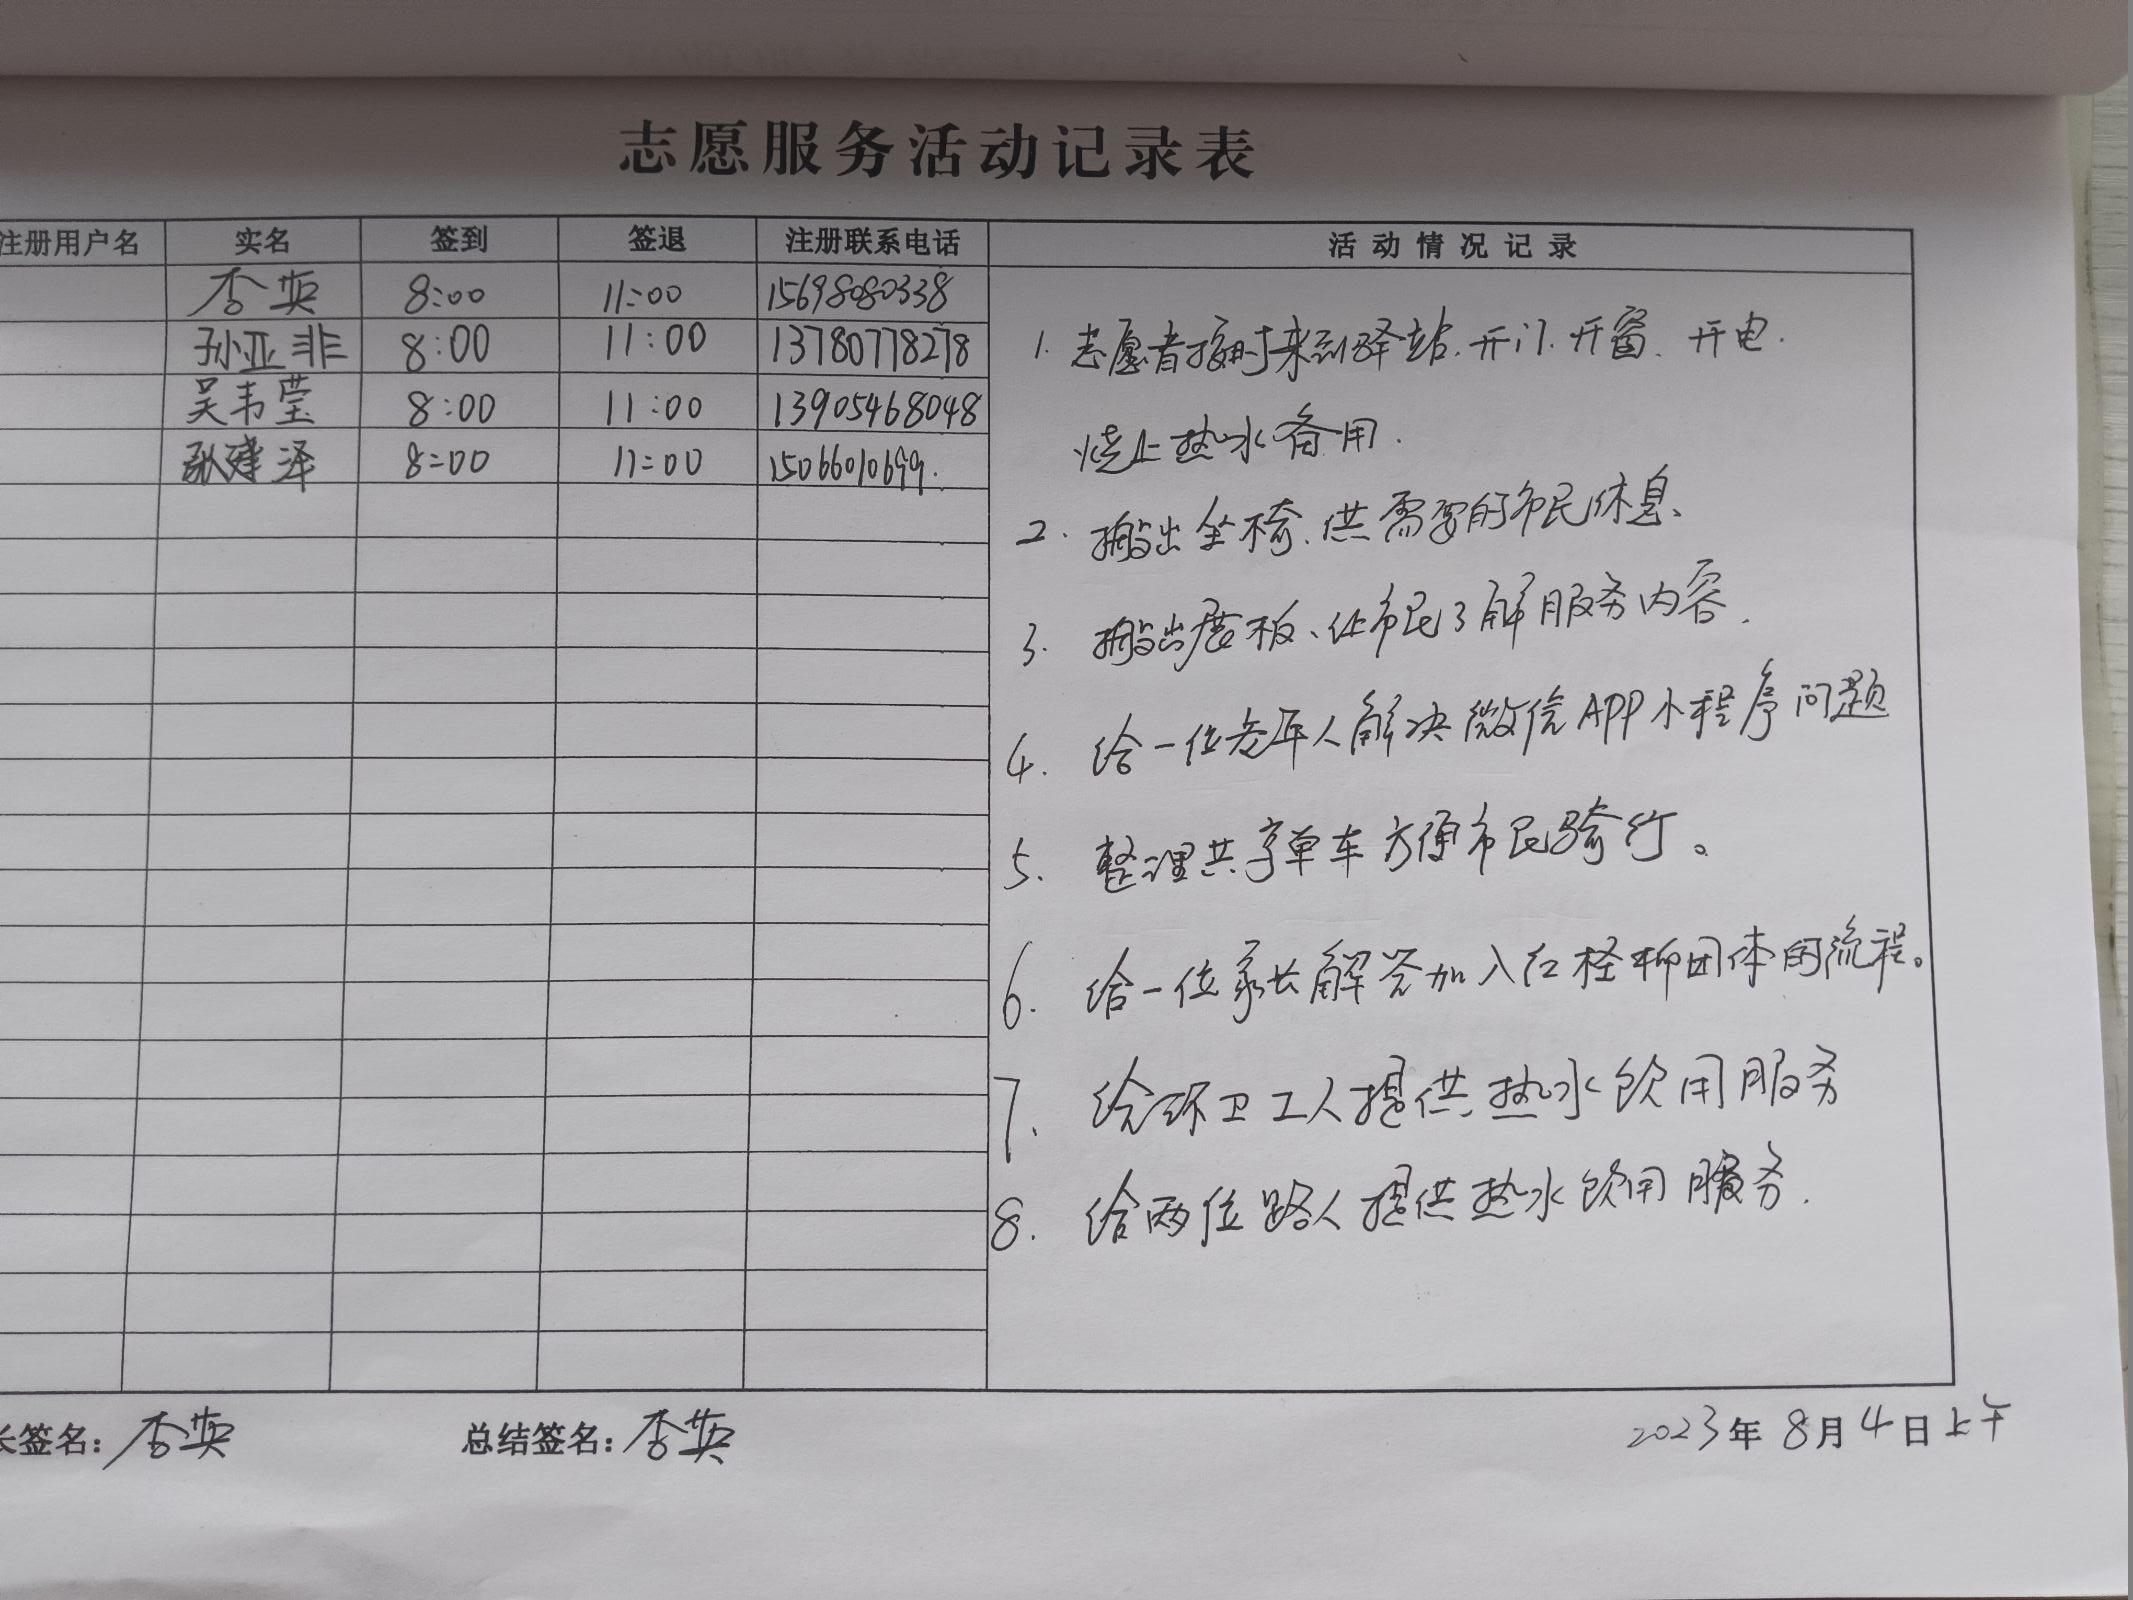 志愿服务活动记录表
注册用户名 实名 签到 签退 注册联系电话 活动情况记录
李英 8:00 11:00 15698080338
孙亚非 8:00 11:00 13780778278
吴韦莹 8:00 11:00 13905468048
耿建泽 8:00 11:00 15066010699.
1. 志愿者按时来到驿站.开门.开窗、开电.
烧上热水备用.
2. 搬出坐椅、供需要的市民休息、
3. 搬出展板、让市民了解服务内容.
4. 给一位老年人解决微信APP小程序问题
5. 整理共享单车方便市民骑行。
6. 给一位家长解答加入红柽柳团体的流程。
7. 给环卫工人提供热水饮用服务
8. 给两位路人提供热水饮用服务.
长签名：李英 总结签名：李英 2023年8月4日上午